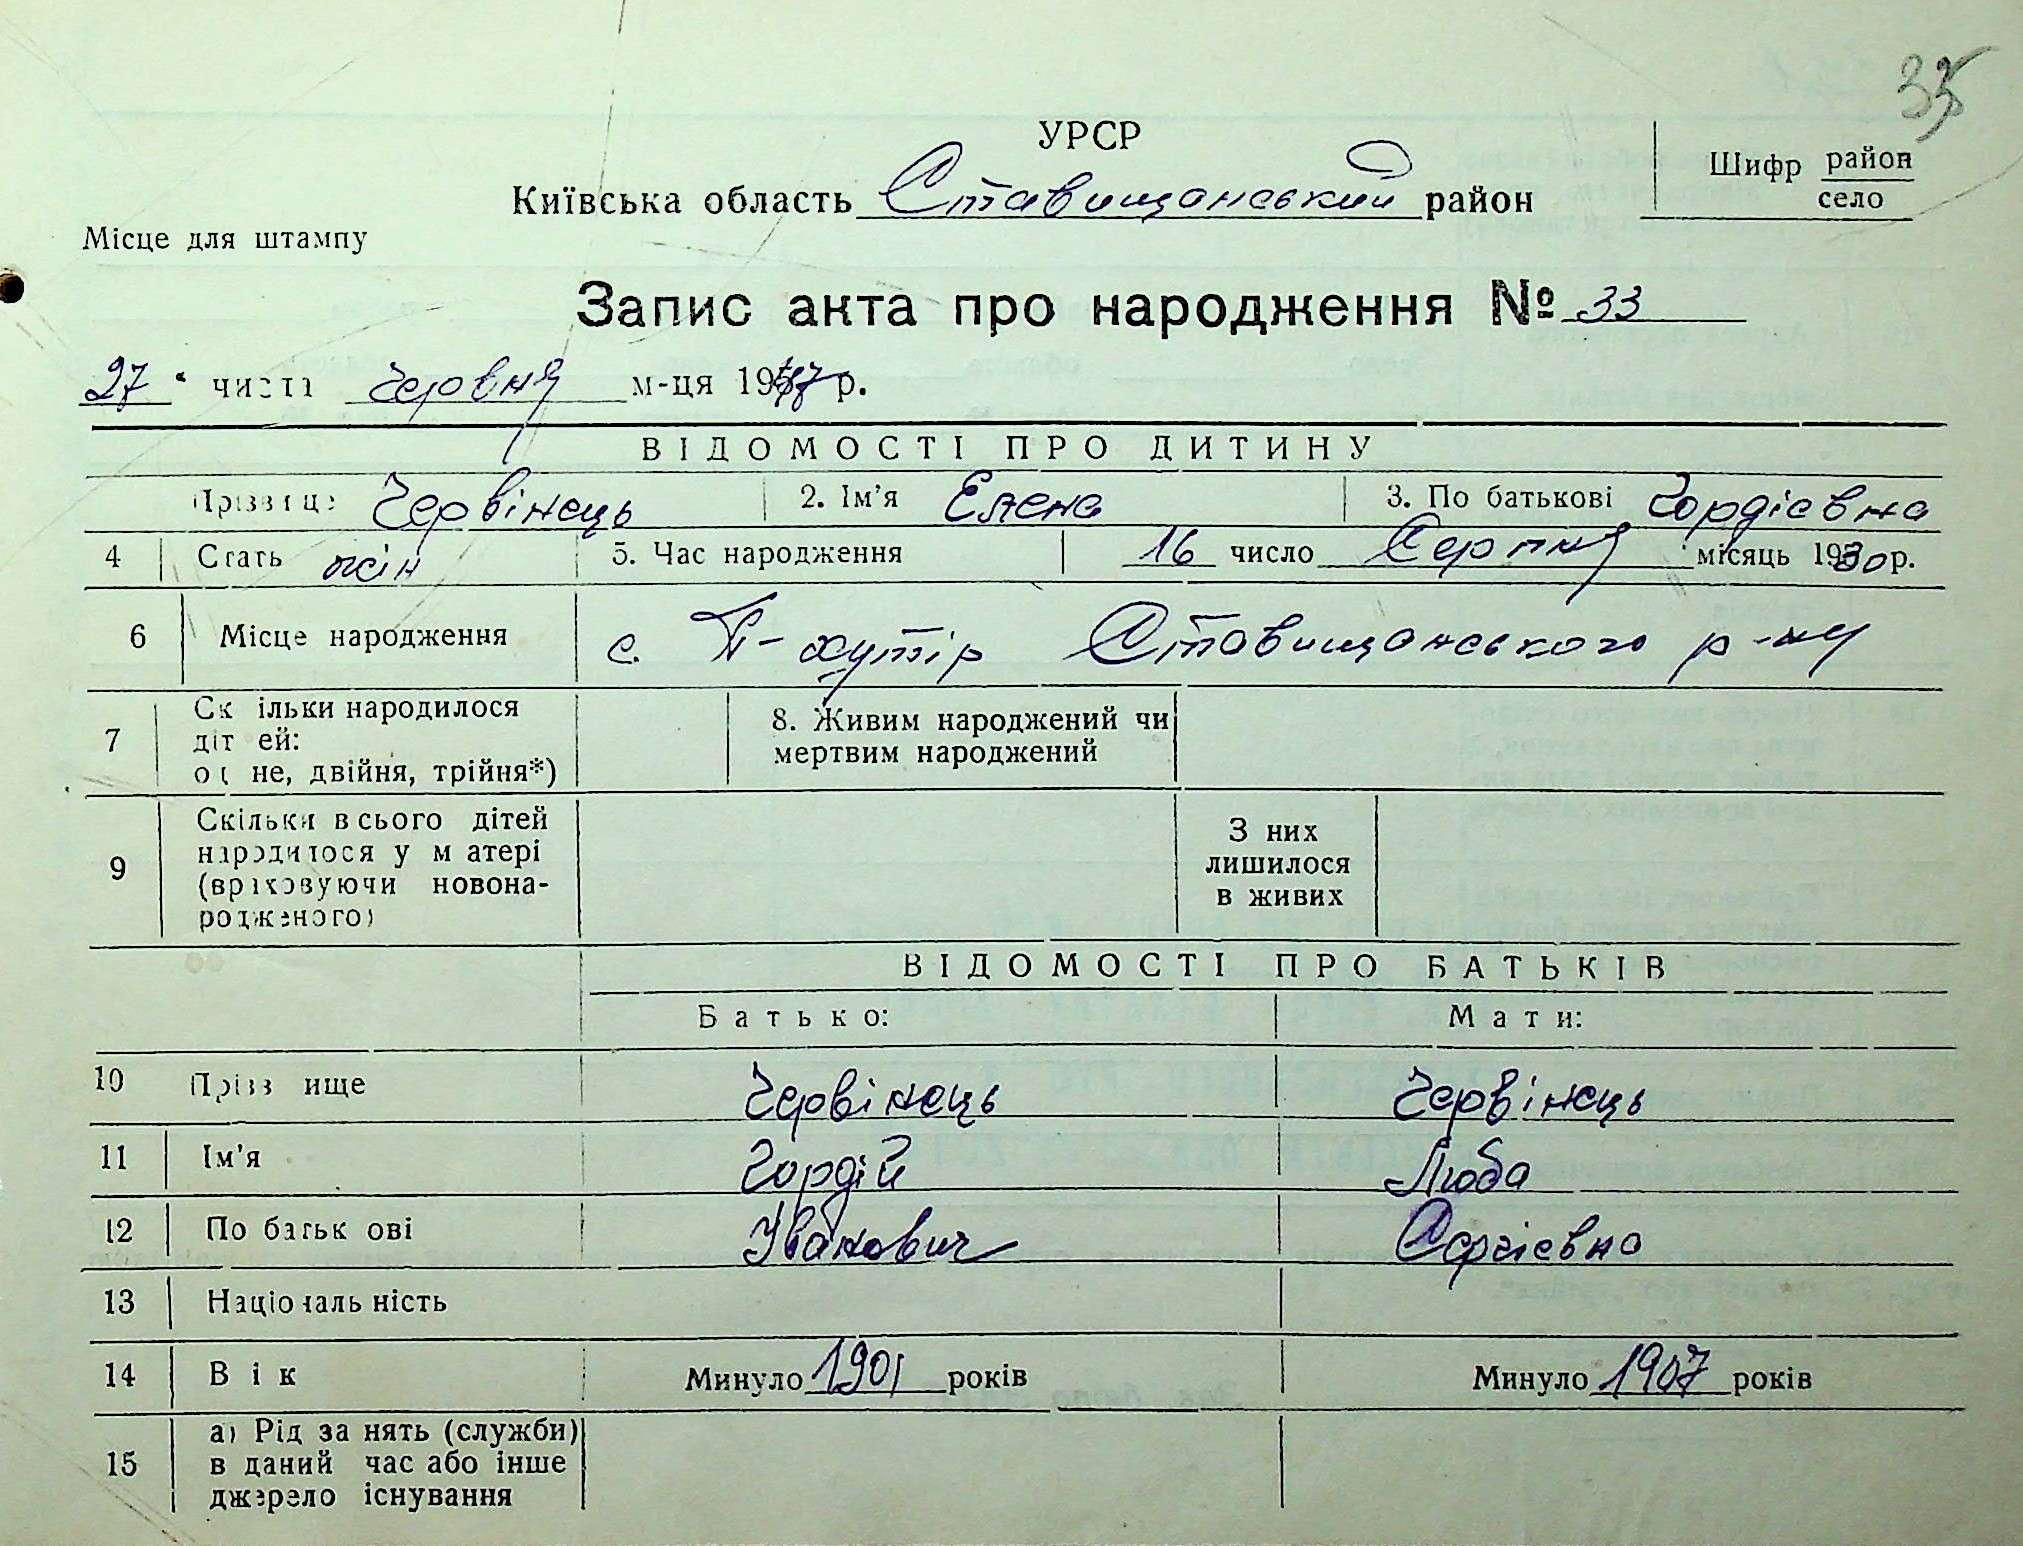 33
УРСР
Київська область Ставищанський район
Шифр район
село
Місце для штампу
Запис акта про народження № 33
27 " числа Червня м-ця 19 р.
ВІДОМОСТІ ПРО ДИТИНУ
Прізвище Червінець 2. Ім'я Елена 3. По батькові Гордієвна
4 Стать жін 5. Час народження 16 число Серпня місяць 1930 р.
6 Місце народження с. П-хутір Ставищанського р-ну
7 Скільки народилося
дітей:
одне, двійня, трійня*)
8. Живим народжений чи
мертвим народжений
9 Скільки всього дітей
народилося у матері
(враховуючи новона-
родженого)
З них
лишилося
в живих
ВІДОМОСТІ ПРО БАТЬКІВ
Батько: Мати:
10 Прізвище Червінець Червінець
11 Ім'я Гордій Люба
12 По батькові Іванович Сергієвна
13 Національність
14 Вік Минуло 1901 років Минуло 1907 років
15 а) Рід занять (служби)
в даний час або інше
джерело існування